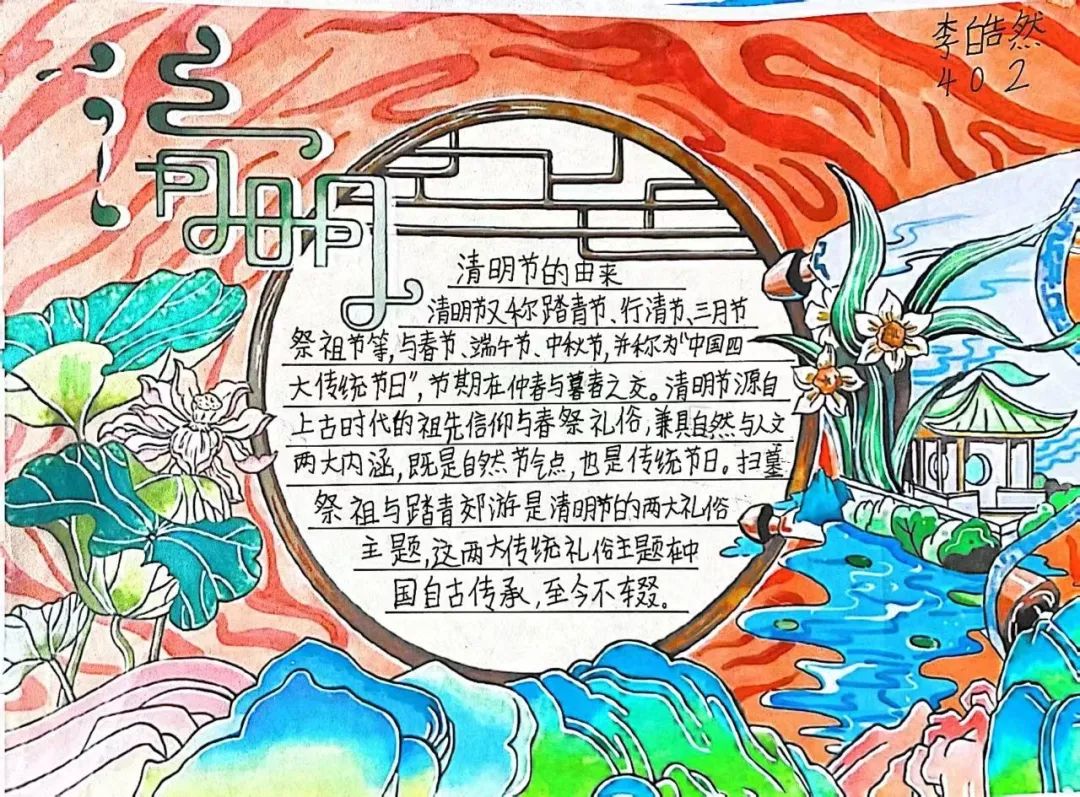 李皓然
402
清明
清明节的由来
清明节又称踏青节、行清节、三月节
祭祖节等,与春节、端午节、中秋节,并称为“中国四
大传统节日”,节期在仲春与暮春之交。清明节源自
上古时代的祖先信仰与春祭礼俗,兼具自然与人文
两大内涵,既是自然节气点,也是传统节日。扫墓
祭祖与踏青郊游是清明节的两大礼俗
主题,这两大传统礼俗主题在中
国自古传承,至今不辍。